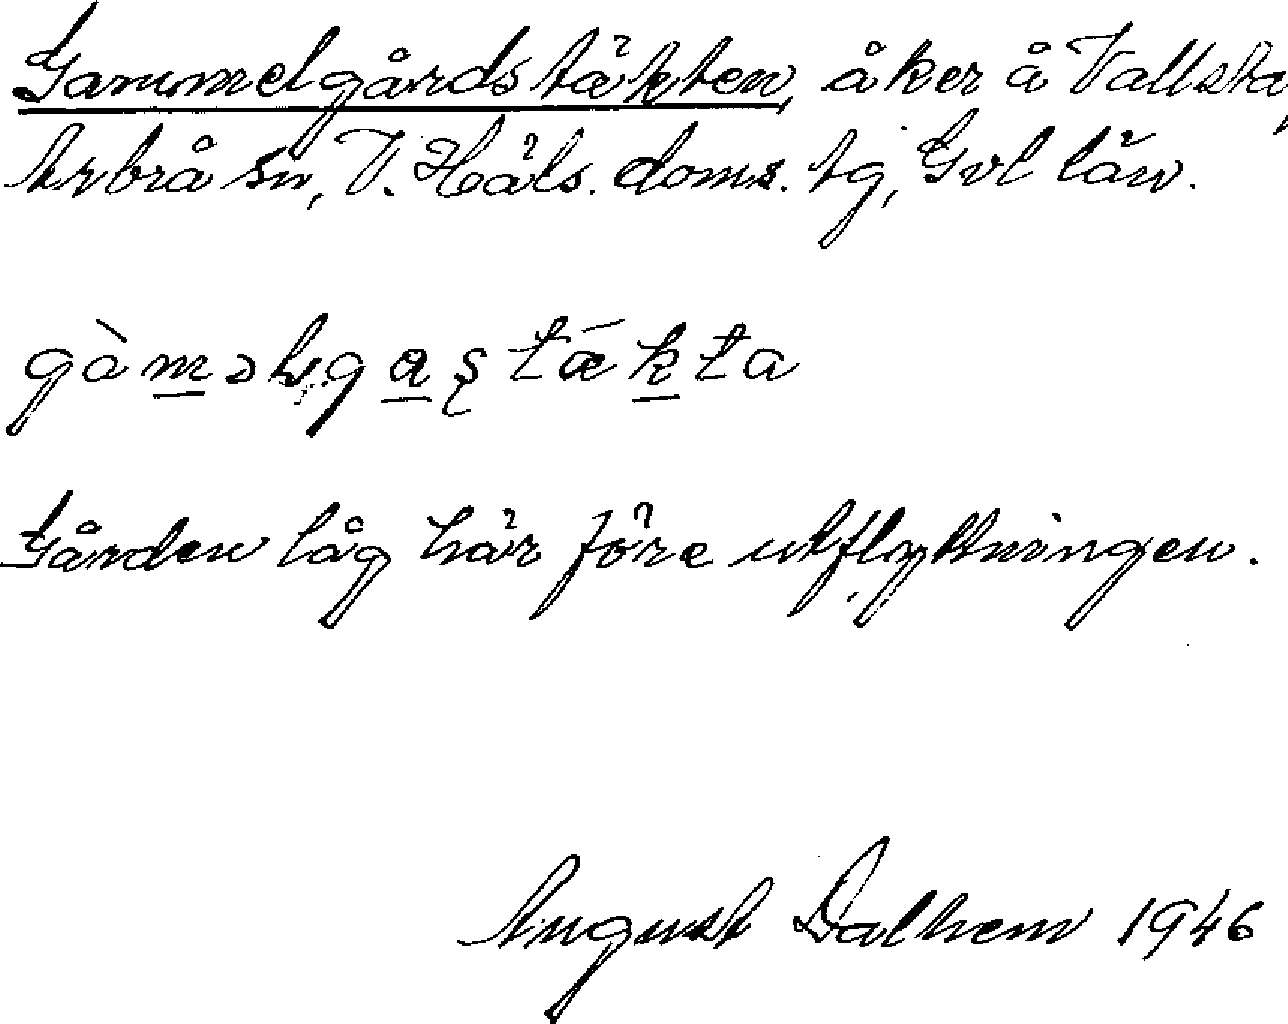 Gammelgårdstäkten, åker å Vallsta,
Arbrå sn, V. Häls. doms. tg, Gvl län.
Gården låg här före utflyttningen.
August Dalhem 1946